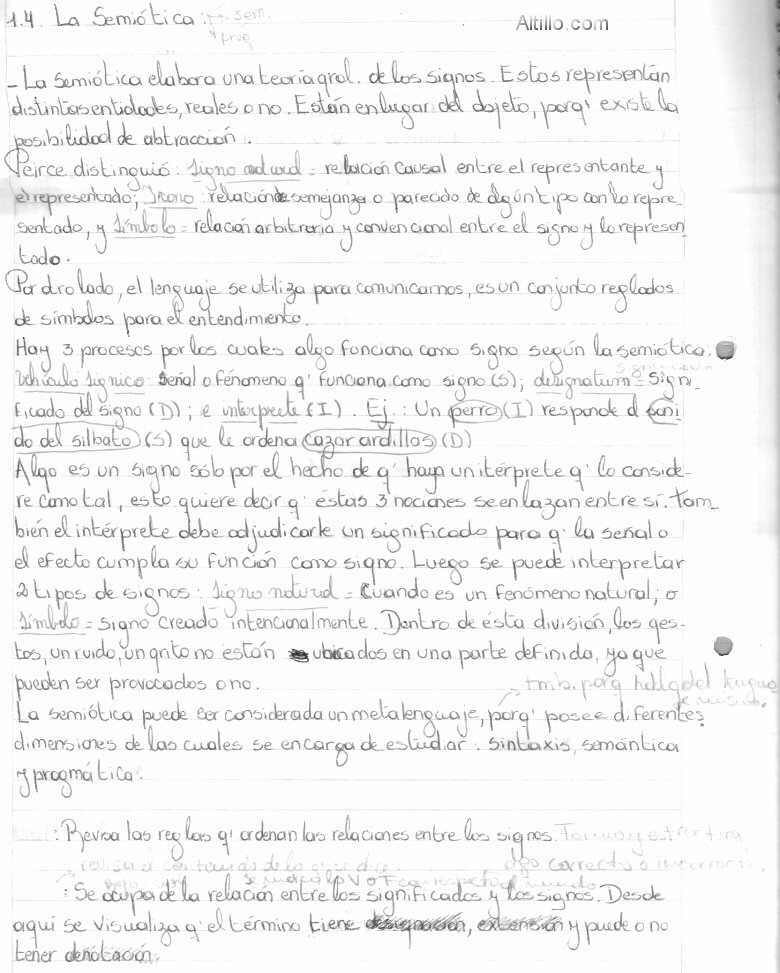 1.4 La Semiótica: sem.
Altillo.com
- La semiótica elabora una teoría gral. de los signos. Estos representan
distintas entidades, reales o no. Están en lugar del objeto, porq' existe la
posibilidad de abtraccion.
Peirce distinguió: Signo natural = relación causal entre el representante y
el representado; Icono: relación de semejanza o parecido de algún tipo con lo repre_
sentado, y símbolo = relación arbitraria y convencional entre el signo y lo represen_
tado.
Por otro lado, el lenguaje se utiliza para comunicarnos, es un conjunto reglados
de símbolos para el entendimiento.
Hay 3 procesos por los cuales algo funciona como signo según la semiótica.
Vehículo sígnico: señal o fénomeno q' funciona como signo (S); designatum = sign_
ficado del signo (D); e interprete (I). Ej.: Un perro (I) responde al soni_
do del silbato (S) que le ordena cazar ardillas (D)
Algo es un signo sólo por el hecho de q' haya un itérprete q' lo conside-
re como tal, esto quiere decir q' estas 3 nociones se enlazan entre sí. Tam_
bién el intérprete debe adjudicarle un significado para q' la señal o
el efecto cumpla su función como signo. Luego se puede interpretar
2 tipos de signos: Signo natural = Cuando es un fenómeno natural; o
símbolo = signo creado intencionalmente. Dentro de ésta división, los ges-
tos, un ruido, un grito no están ubicados en una parte definida, ya que
pueden ser provocados o no.
tmb. porq habla del lengua
La semiótica puede ser considerada un metalenguaje, porq' posee diferentes
dimensiones de las cuales se encarga de estudiar. sintaxis, semántica
y pragmática.
: Revisa las reglas q' ordenan las relaciones entre los signos.
correcto o incorrecto.
: Se ocupa de la relación entre los significados y los signos. Desde
aquí se visualiza q' el término tiene extensión y puede o no
tener denotación.